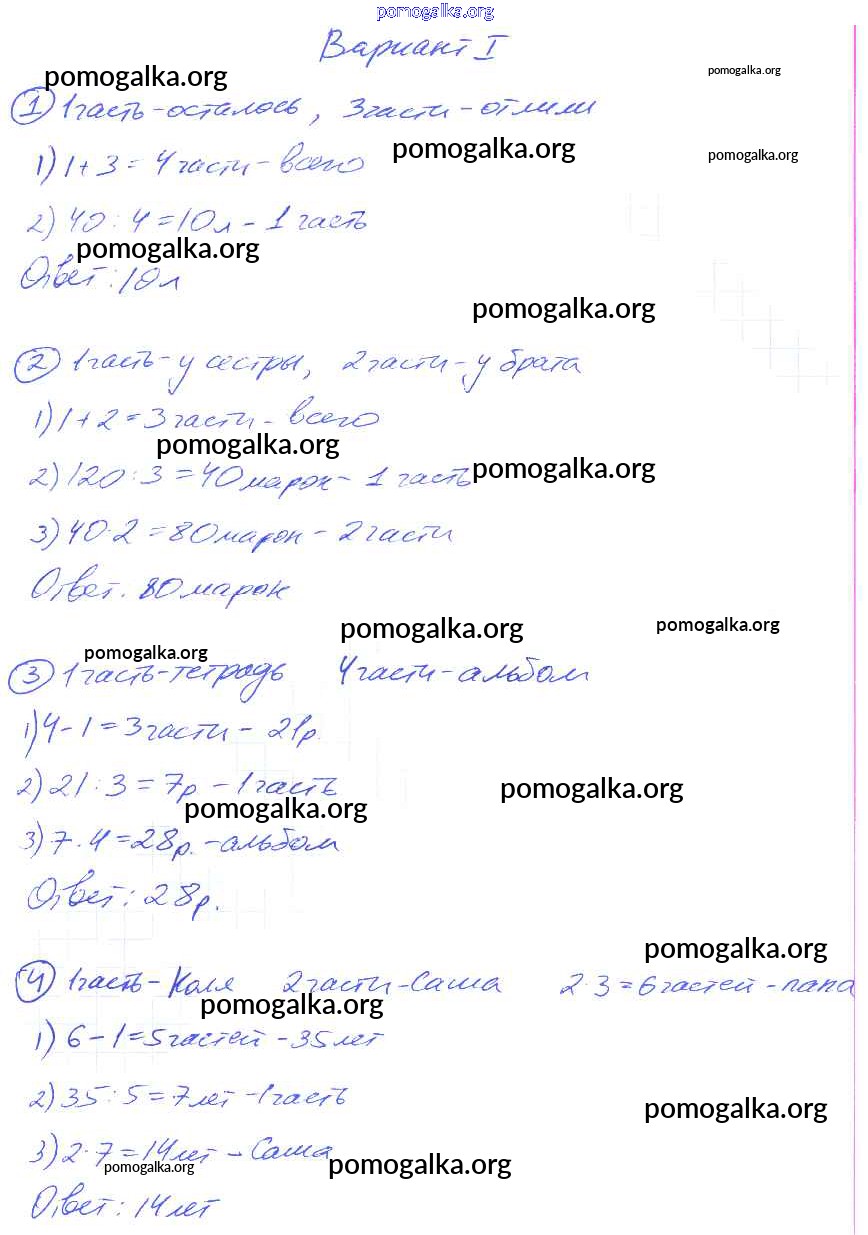 pomogalka.org
Вариант I
pomogalka.org
pomogalka.org
1 1часть - осталось, 3 части - отлили
pomogalka.org
pomogalka.org
1) 1 + 3 = 4 части - всего
2) 40 : 4 = 10 л - 1 часть
pomogalka.org
Ответ: 10 л
pomogalka.org
2 1часть - у сестры, 2 части - у брата
1) 1 + 2 = 3 части - всего
pomogalka.org
pomogalka.org
2) 120 : 3 = 40 марок - 1 часть
3) 40 · 2 = 80 марок - 2 части
Ответ. 80 марок
pomogalka.org
pomogalka.org
pomogalka.org
3 1 часть - тетрадь 4 части - альбом
1) 4 - 1 = 3 части - 21р.
2) 21 : 3 = 7р - 1 часть
pomogalka.org
pomogalka.org
3) 7 · 4 = 28р. - альбом
Ответ: 28р.
pomogalka.org
4 1часть - Коля 2 части - Саша 2 · 3 = 6 частей - папа
pomogalka.org
1) 6 - 1 = 5 частей - 35 лет
2) 35 : 5 = 7 лет - 1 часть
pomogalka.org
3) 2 · 7 = 14 лет - Саша
pomogalka.org
pomogalka.org
Ответ: 14 лет